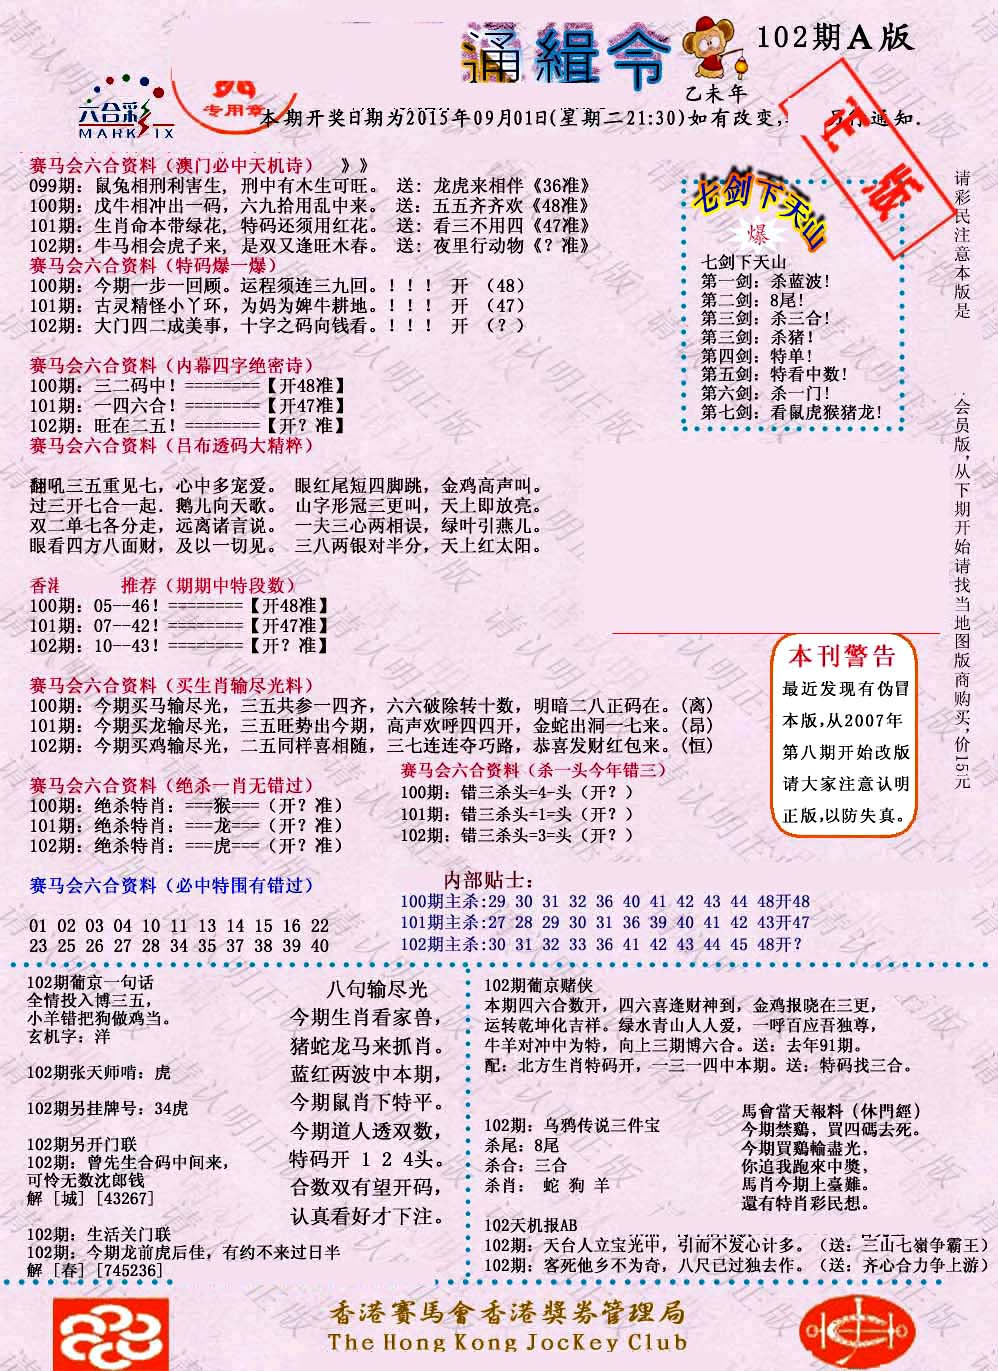 通緝令
102期A版
乙未年
六合彩
MARK SIX
专用章
正版
本期开奖日期为2015年09月01日(星期二21:30)如有改变,
通知.
赛马会六合资料（澳门必中天机诗） 》》
099期：鼠兔相刑利害生, 刑中有木生可旺。 送：龙虎来相伴《36准》
100期：戊牛相冲出一码，六九拾用乱中来。 送：五五齐齐欢《48准》
101期：生肖命本带绿花, 特码还须用红花。 送：看三不用四《47准》
102期：牛马相会虎子来, 是双又逢旺木春。 送：夜里行动物《？准》
赛马会六合资料（特码爆一爆）
100期：今期一步一回顾。运程须连三九回。！！！ 开 （48）
101期：古灵精怪小丫环，为妈为婢牛耕地。！！！ 开 （47）
102期：大门四二成美事，十字之码向钱看。！！！ 开 （？）
赛马会六合资料（内幕四字绝密诗）
100期：三二码中！========【开48准】
101期：一四六合！========【开47准】
102期：旺在二五！========【开？准】
赛马会六合资料（吕布透码大精粹）
翻吼三五重见七，心中多宠爱。 眼红尾短四脚跳，金鸡高声叫。
过三开七合一起．鹅儿向天歌。 山字形冠三更叫，天上即放亮。
双二单七各分走，远离诸言说。 一夫三心两相误，绿叶引燕儿。
眼看四方八面财，及以一切见。 三八两银对半分，天上红太阳。
七剑下天山
爆
七剑下天山
第一剑：杀蓝波!
第二剑：8尾!
第三剑：杀三合!
第三剑：杀猪!
第四剑：特单!
第五剑：特看中数!
第六剑：杀一门!
第七剑：看鼠虎猴猪龙!
请彩民注意本版是
会员版,从下期开始请找当地图版商购买,价15元
香港 推荐（期期中特段数）
100期：05--46！========【开48准】
101期：07--42！========【开47准】
102期：10--43！========【开？准】
赛马会六合资料（买生肖输尽光料）
100期：今期买马输尽光，三五共参一四齐，六六破除转十数，明暗二八正码在。(离)
101期：今期买龙输尽光，三五旺势出今期，高声欢呼四四开，金蛇出洞一七来。(昂)
102期：今期买鸡输尽光，二五同样喜相随，三七连连夺巧路，恭喜发财红包来。(恒)
本刊警告
最近发现有伪冒
本版,从2007年
第八期开始改版
请大家注意认明
正版,以防失真。
赛马会六合资料（绝杀一肖无错过）
100期：绝杀特肖：===猴===（开？准）
101期：绝杀特肖：===龙===（开？准）
102期：绝杀特肖：===虎===（开？准）
赛马会六合资料（杀一头今年错三）
100期：错三杀头=4-头（开？）
101期：错三杀头=1=头（开？）
102期：错三杀头=3=头（开？）
赛马会六合资料（必中特围有错过）
01 02 03 04 10 11 13 14 15 16 22
23 25 26 27 28 34 35 37 38 39 40
内部贴士：
100期主杀:29 30 31 32 36 40 41 42 43 44 48开48
101期主杀:27 28 29 30 31 36 39 40 41 42 43开47
102期主杀:30 31 32 33 36 41 42 43 44 45 48开？
102期葡京一句话
全情投入博三五，
小羊错把狗做鸡当。
玄机字：洋
102期张天师啃：虎
102期另挂牌号：34虎
102期另开门联
102期：曾先生合码中间来，
可怜无数沈郎钱
解 [城] [43267]
102期：生活关门联
102期：今期龙前虎后佳，有约不来过日半
解 [春] [745236]
八句输尽光
今期生肖看家兽，
猪蛇龙马来抓肖。
蓝红两波中本期，
今期鼠肖下特平。
今期道人透双数，
特码开 1 2 4头。
合数双有望开码，
认真看好才下注。
102期葡京赌侠
本期四六合数开，四六喜逢财神到，金鸡报晓在三更，
运转乾坤化吉祥。绿水青山人人爱，一呼百应吾独尊，
牛羊对冲中为特，向上三期博六合。送：去年91期。
配：北方生肖特码开，一三一四中本期。送：特码找三合。
102期：乌鸦传说三件宝
杀尾：8尾
杀合：三合
杀肖： 蛇 狗 羊
馬會當天報料（休門經）
今期禁鷄，買四碼去死。
今期買鷄輸盡光，
你追我跑來中獎，
馬肖今期上臺難。
還有特肖彩民想。
102天机报AB
102期：天台人立宝光中，引而不发心计多。（送：三山七嶺争霸王）
102期：客死他乡不为奇，八尺已过独去作。（送：齐心合力争上游）
香港賽馬會香港獎券管理局
The Hong Kong Jockey Club